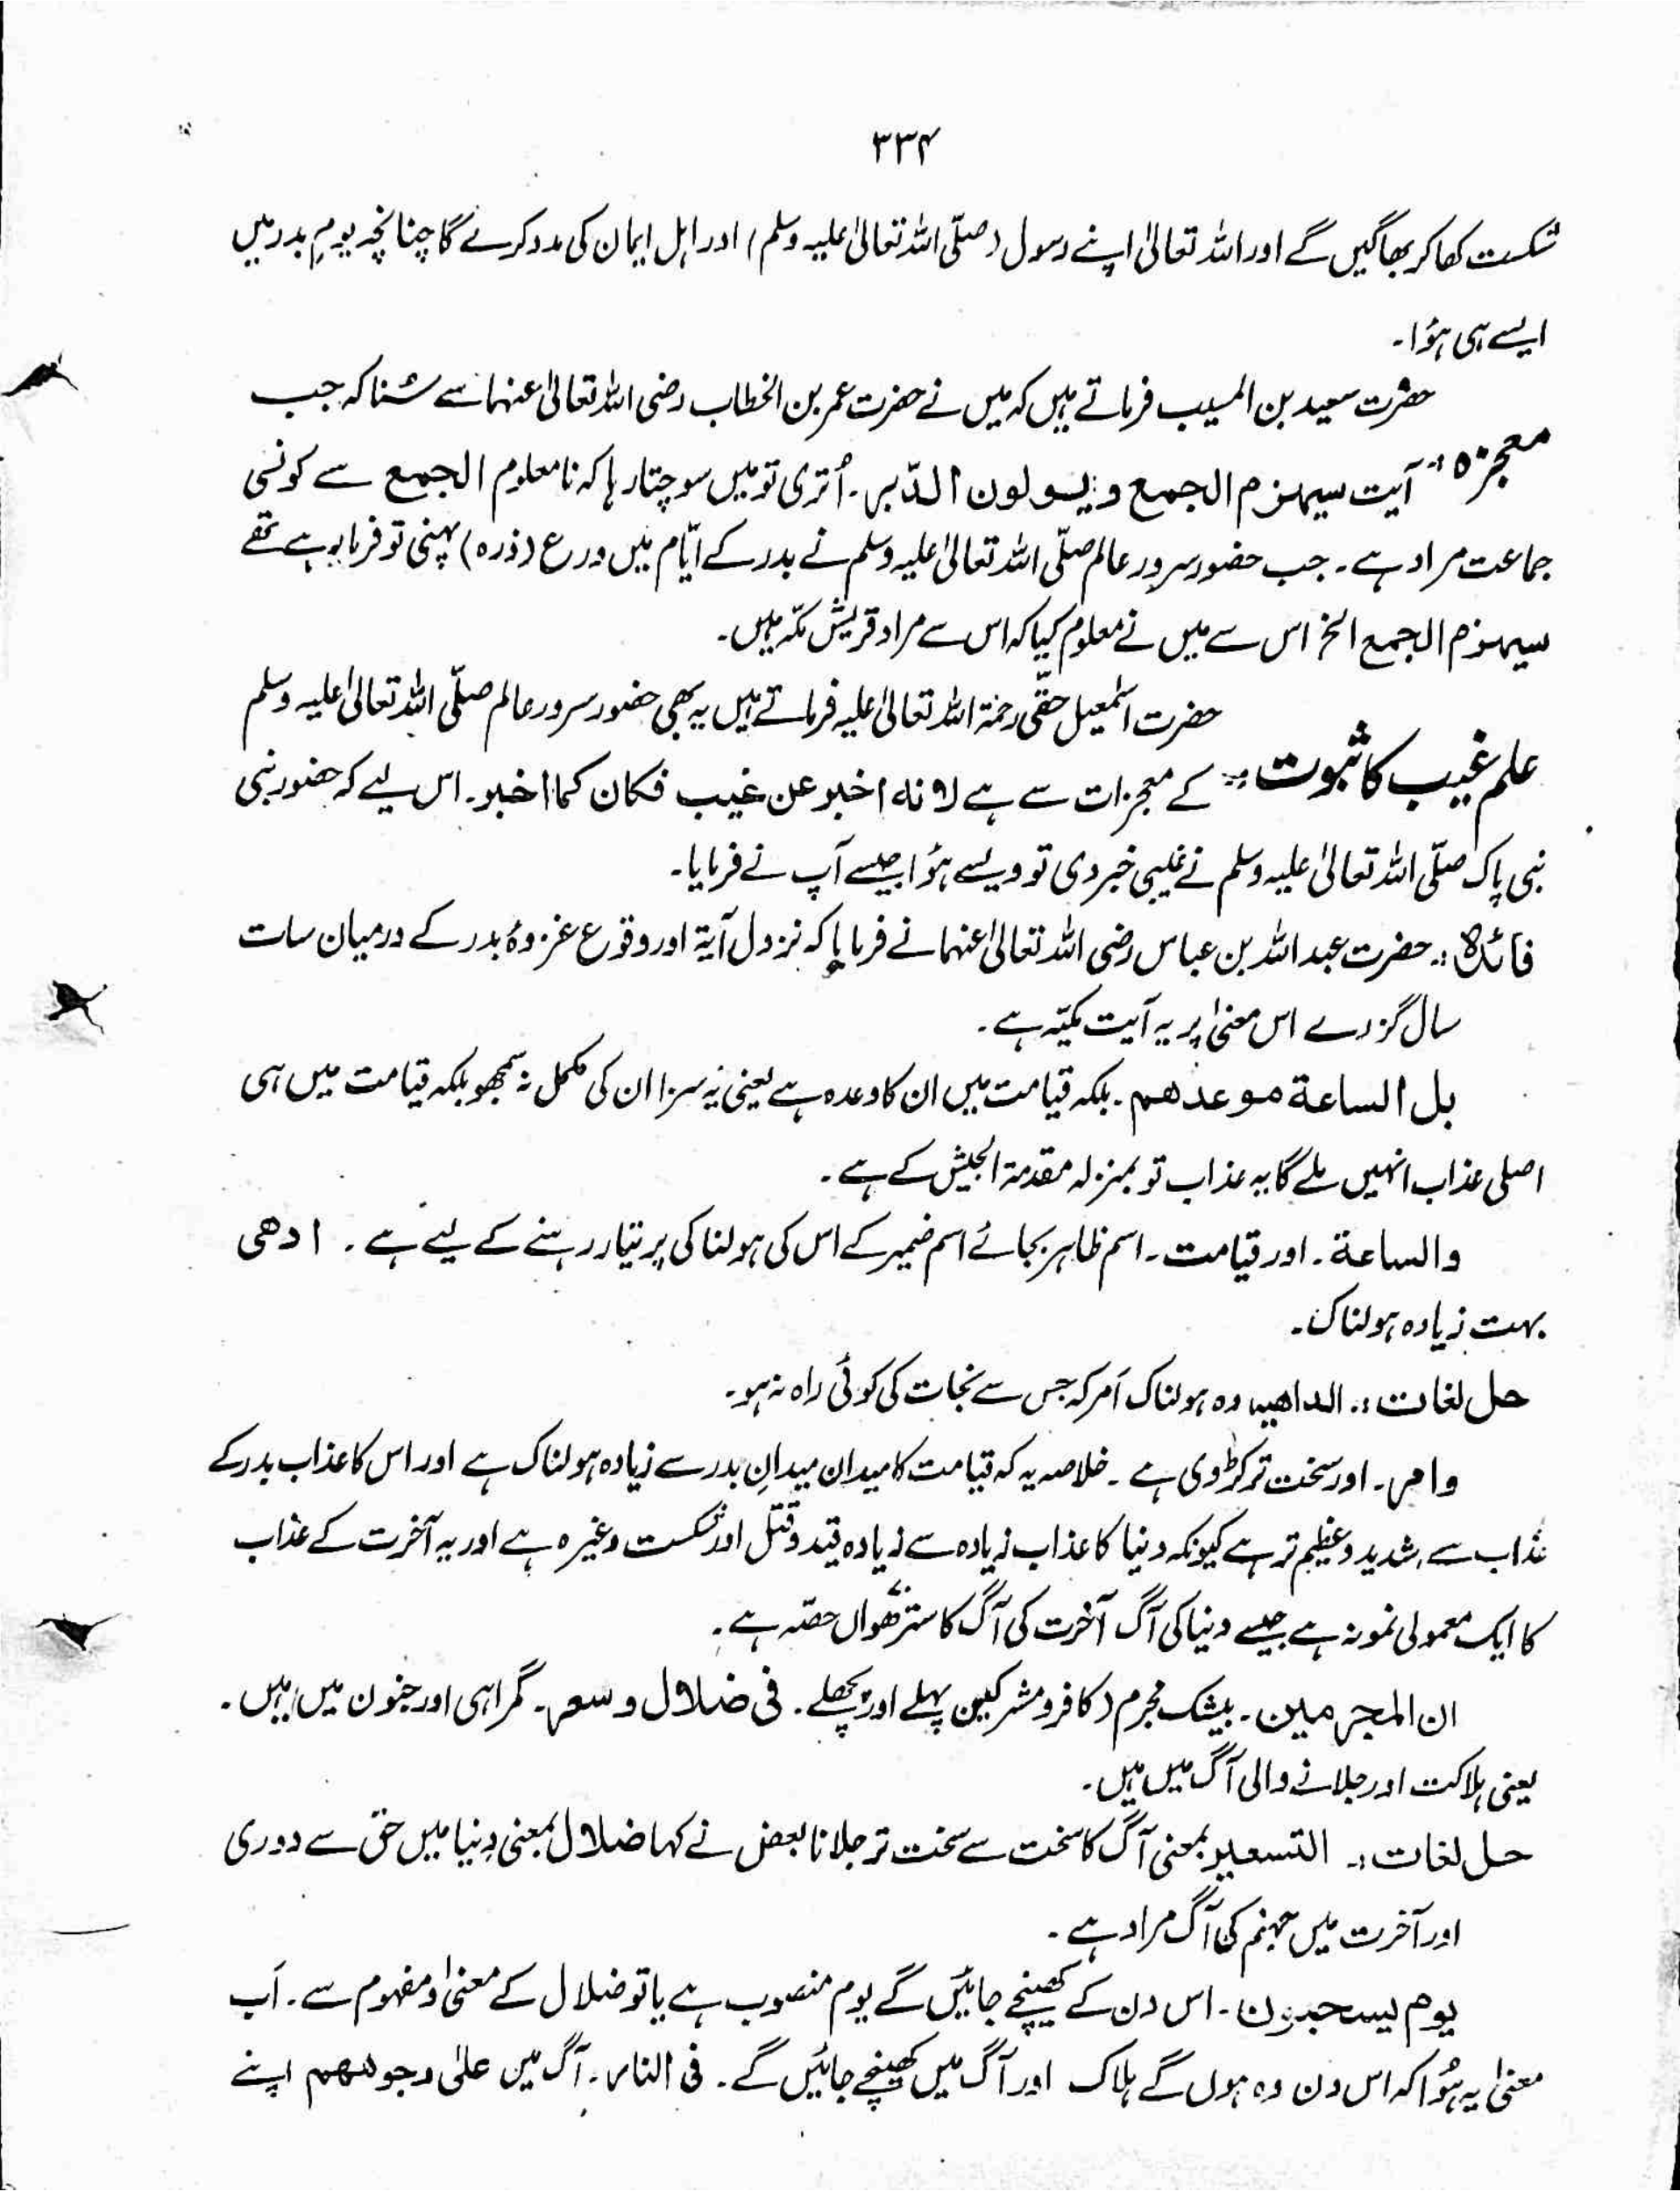 ۳۳۴
شکست کھا کر بھاگیں گے اور اللہ تعالیٰ اپنے رسول (صلّی اللہ تعالیٰ علیہ وسلم) اور اہل ایمان کی مدد کرے گا چنانچہ یومِ بدر میں
ایسے ہی ہؤا۔
حضرت سعید بن المسیب فرماتے ہیں کہ میں نے حضرت عمر بن الخطاب رضی اللہ تعالیٰ عنہما سے سُنا کہ جب
معجزہ :- آیت سیھزم الجمع و یسولون الدّبر۔ اُتری تو میں سوچتا رہا کہ نامعلوم الجمع سے کونسی
جماعت مراد ہے۔ جب حضور سرور عالم صلّی اللہ تعالیٰ علیہ وسلم نے بدر کے ایّام میں درع (ذرہ) پہنی تو فرما رہے تھے
سیھزم الجمع الخ اس سے میں نے معلوم کیا کہ اس سے مراد قریش مکّہ ہیں۔
حضرت اسمٰعیل حقّی رحمۃ اللہ تعالیٰ علیہ فرماتے ہیں یہ بھی حضور سرور عالم صلّی اللہ تعالیٰ علیہ وسلم
علم غیب کا ثبوت :- کے معجزات سے ہے لانہ اخبر عن غیب فکان کما اخبر۔ اس لیے کہ حضور نبی
نبی پاک صلّی اللہ تعالیٰ علیہ وسلم نے غیبی خبر دی تو ویسے ہؤا جیسے آپ نے فرمایا۔
فائدہ :- حضرت عبداللہ بن عباس رضی اللہ تعالیٰ عنہما نے فرمایا کہ نزول آیۃ اور وقوع غزوۂ بدر کے درمیان سات
سال گزرے اس معنیٰ پر یہ آیت مکیّہ ہے۔
بل الساعۃ موعدھم۔ بلکہ قیامت میں ان کا وعدہ ہے یعنی یہ سزا ان کی مکمل نہ سمجھو بلکہ قیامت میں ہی
اصلی عذاب انہیں ملے گا یہ عذاب تو بمنزلہ مقدمۃ الجیش کے ہے۔
والساعۃ۔ اور قیامت۔ اسم ظاہر بجائے اسم ضمیر کے اس کی ہولناکی پر تیار رہنے کے لیے ہے۔ ادھی
بہت زیادہ ہولناک۔
حل لغات :- الداھیہ وہ ہولناک اَمر کہ جس سے نجات کی کوئی راہ نہ ہو۔
وامر۔ اور سخت تر کڑوی ہے۔ خلاصہ یہ کہ قیامت کا میدان میدانِ بدر سے زیادہ ہولناک ہے اور اس کا عذاب بدر کے
عذاب سے شدید و عظیم تر ہے کیونکہ دنیا کا عذاب زیادہ سے زیادہ قید و قتل اور شکست وغیرہ ہے اور یہ آخرت کے عذاب
کا ایک معمولی نمونہ ہے جیسے دنیا کی آگ آخرت کی آگ کا سترھواں حصّہ ہے۔
ان المجرمین۔ بیشک مجرم (کافر و مشرکین پہلے اور پچھلے۔ فی ضلال و سعر۔ گمراہی اور جنون میں ہیں۔
یعنی ہلاکت اور جلانے والی آگ میں ہیں۔
حل لغات :- التسعیر بمعنی آگ کا سخت سے سخت تر جلانا بعض نے کہا ضلال بمعنی دنیا میں حق سے دوری
اور آخرت میں جہنم کی آگ مراد ہے۔
یوم یسحبون۔ اس دن کے کھینچے جائیں گے یوم منصوب ہے یا تو ضلال کے معنیٰ و مفہوم سے۔ اَب
معنیٰ یہ ہُوا کہ اس دن وہ ہوں گے ہلاک اور آگ میں کھینچے جائیں گے۔ فی النار۔ آگ میں علیٰ وجوھھم اپنے